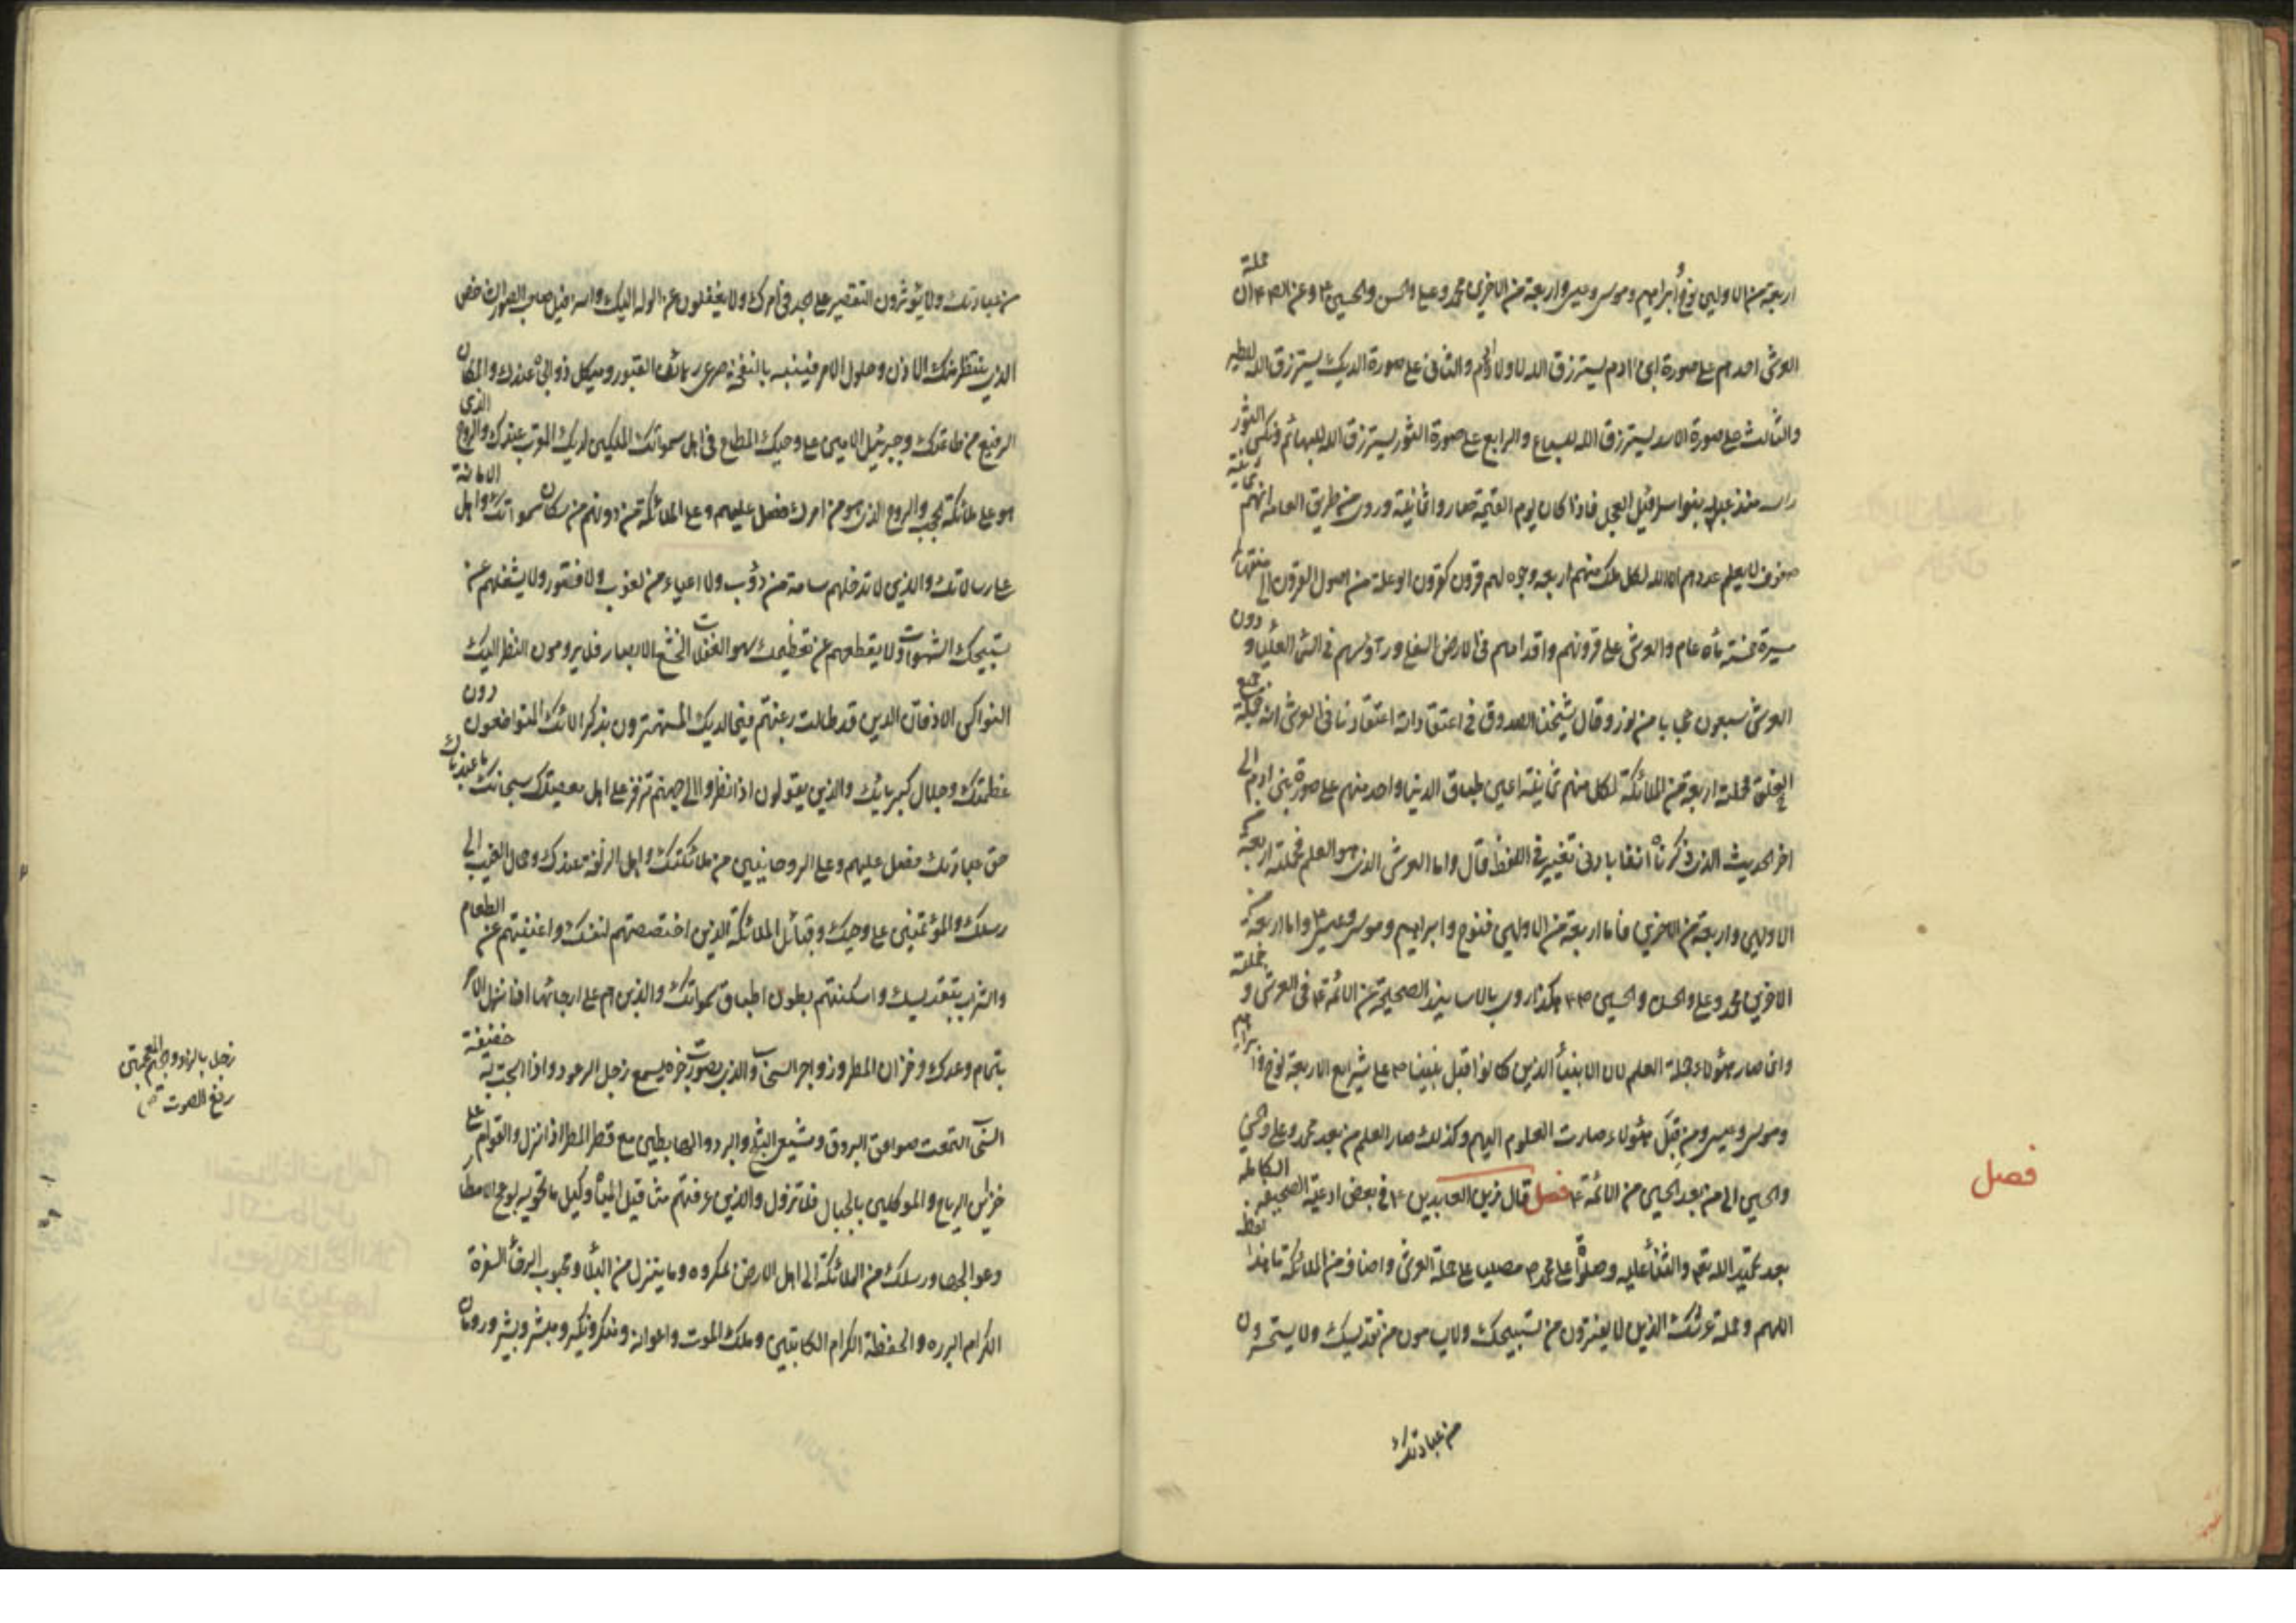 اربعة من الاولين نوح وابراهيم وموسى وعيسى واربعة من الاخرين محمد وعلي والحسن والحسين ٣ وعن الصم ان حملة
العرش احدهم على صورة ابن ادم يسترزق الله لاولاد ادم والثاني على صورة الديك يسترزق الله للطير
والثالث على صورة الاسد يسترزق الله للسباع والرابع على صورة الثور يسترزق الله للبهائم ونكس الثور
راسه منذ عبد بنوا اسرائيل العجل فاذا كان يوم القيمة صاروا ثمانية وروى من طريق العامه انهم ثمانية
صفوف لا يعلم عددهم الا الله لكل ملك منهم اربعه وجوه لهم قرون كقرون الوعلة من اصول القرون الى منتهاها
مسيرة خمسة مأة عام والعرش على قرونهم واقدامهم في الارض السفلى ورؤسهم في السماء العليا و دون
العرش سبعون حجابا من نور وقال شيخنا الصدوق في اعتقاداته اعتقادنا في العرش انه جملة جميع
الخلق وحملته اربعة من الملائكة لكل منهم ثمانية اعين طباق الدنيا واحد منهم على صورة بنى ادم الى
اخر الحديث الذي ذكرناه انفا بادنى تغيير في اللفظ قال واما العرش الذي هو العلم فحملته اربعة من
الاولين واربعة من الاخرين فاما اربعة من الاولين فنوح وابراهيم وموسى وعيسى ٣ واما اربعة من
الاخرين محمد وعلي والحسن والحسين ٣ هكذا روى بالاسانيد الصحيحة عن الائمة ٣ في العرش و حملته
وانما صار هؤلاء حملة العلم لان الانبياء الذين كانوا قبل نبينا ص على شرايع الاربعة نوح وابراهيم
وموسى وعيسى ومن قبل هؤلاء صارت العلوم اليهم وكذلك صار العلم من بعد محمد وعلي والحسن
والحسين الى من بعد الحسين من الائمة ٣ فصل قال زين العابدين ٣ في بعض ادعية الصحيفه الكاملة
بعد تحميد الله تعه والثناء عليه وصلوة على محمد ص مصليا على حملة العرش واصناف من الملائكة ما هذا لفظه
اللهم وحملة عرشك الذين لا يفترون من تسبيحك ولا يسامون من تقديسك ولا يستحسرون
من عبادتك
فصل
من عبادتك ولا يؤثرون التقصير على الجد في امرك ولا يغفلون عن الوله اليك واسرافيل صاحب الصور الشاخص
الذي ينتظر منك الاذن وحلول الامر فينبه بالنفخة صرعى رهائن القبور وميكائيل ذو الجاه عندك والمكان
الرفيع من طاعتك وجبرئيل الامين على وحيك المطاع في اهل سمواتك المكين لديك المقرب عندك والروح الذي
هو على ملائكة الحجب والروح الذي هو من امرك فصل عليهم وعلى الملائكة من دونهم من سكان سمواتك واهل الامانة
على رسالاتك والذين لا تدخلهم سامة من دؤب ولا اعياء من لغوب ولا فتور ولا يشغلهم عن
تسبيحك الشهوات ولا يقطعهم عن تعظيمك سهو الغفلات الخشع الابصار فلا يرومون النظر اليك
النواكس الاذقان الذين قد طالت رغبتهم فيما لديك المستهترون بذكر الائك المتواضعون دون
عظمتك وجلال كبريائك والذين يقولون اذا نظروا الى جهنم تزفر على اهل معصيتك سبحانك ما عبدناك
حق عبادتك فصل عليهم وعلى الروحانيين من ملائكتك واهل الزلفة عندك وحمال الغيب الى
رسلك والمؤتمنين على وحيك وقبائل الملائكة الذين اختصصتهم لنفسك واغنيتهم عن الطعام
والشراب بتقديسك واسكنتهم بطون اطباق سمواتك والذين هم على ارجائها اذا نزل الامر
بتمام وعدك وخزان المطر وزواجر السحاب والذي بصوت زجره يسمع زجل الرعود واذا سبحت به خفيفة
السحاب التمعت صواعق البروق ومشيعي الثلج والبرد والهابطين مع قطر المطر اذا نزل والقوام على
خزائن الرياح والموكلين بالجبال فلا تزول والذين عرفتهم مثاقيل المياه وكيل ما تحويه لواعج الامطار
وعوالجها ورسلك من الملائكة الى اهل الارض بمكروه وما ينزل من البلاء ومحبوب الرخاء السفرة
الكرام البرره والحفظة الكرام الكاتبين وملك الموت واعوانه ومنكر ونكير ومبشر وبشير ورومان
زجل بالزاء والجيم المعجمتين
رفع الصوت